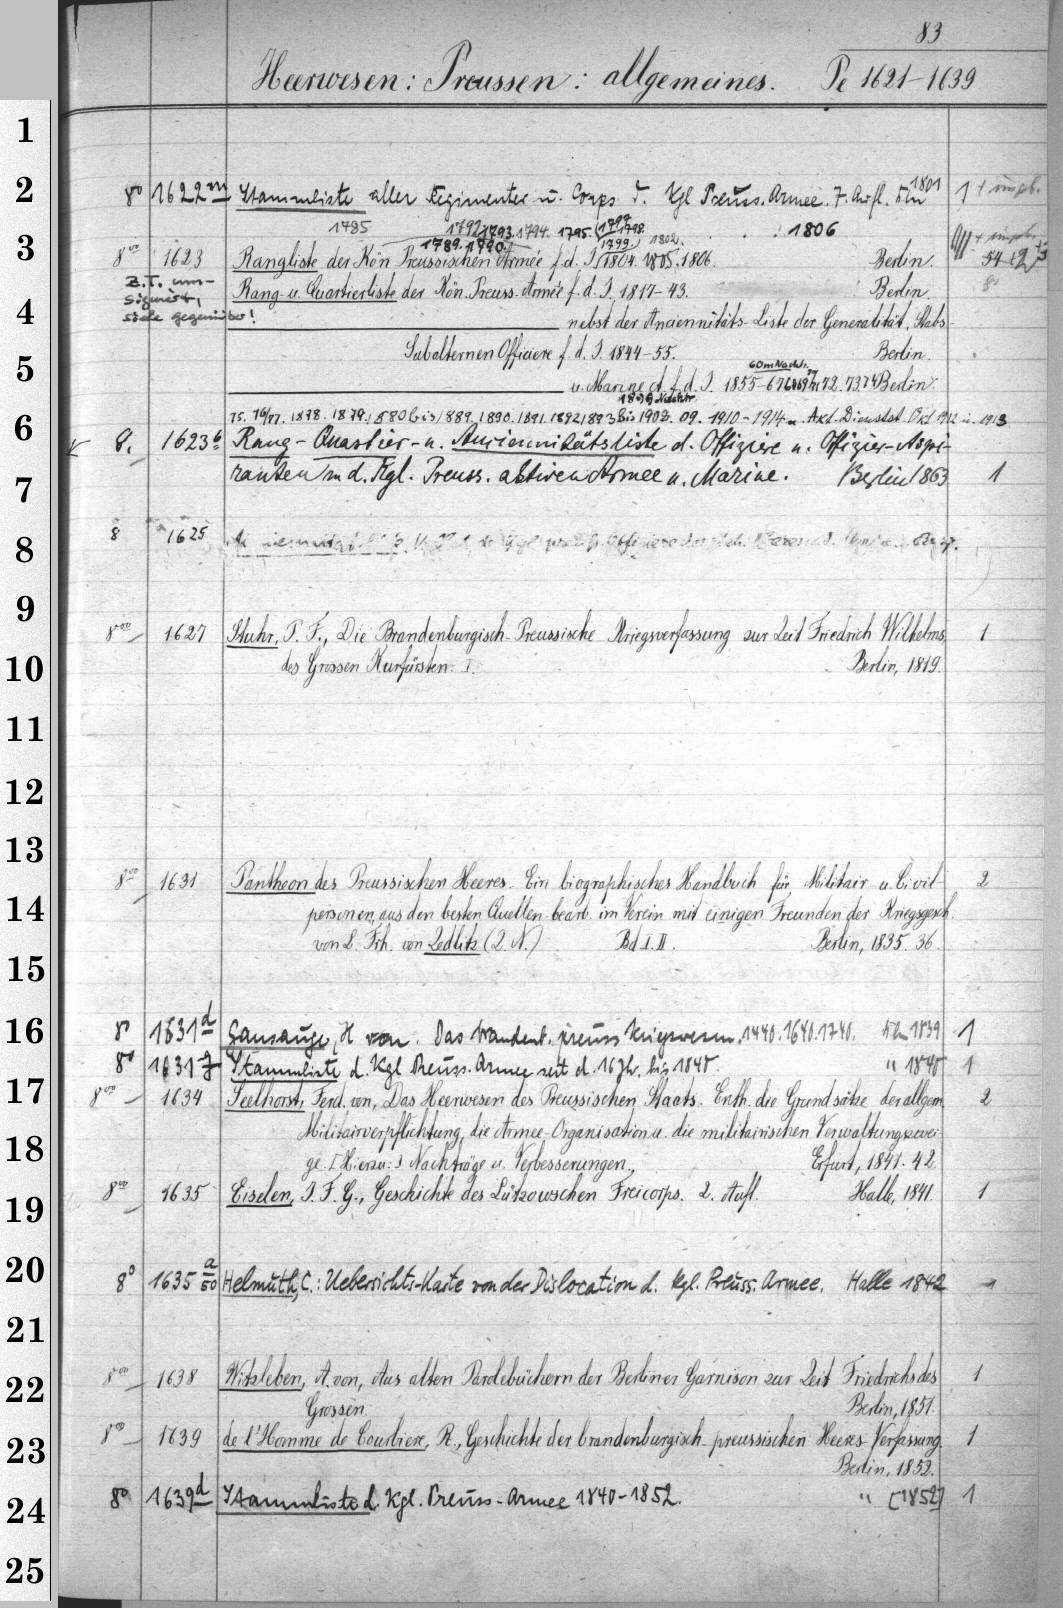 83
Heerwesen: Preussen: allgemeines. Pe 1621-1639
1
2
8° 1622m Stammliste aller Regimenter u. Corps d. Kgl Preuss. Armee. 7. Aufl. Bln 1801 1 + ungeb.
1785 1792. 1793. 1794. 1795. (1797 1798. 1806
3
1789. 1790. 1799.) 1802.
8vo 1623 Rangliste der Kön Preussischen Armee f. d. J. 1804. 1805. 1806. Berlin. 54
B.T. um-
signiert, Rang- u. Quartierliste der Kön. Preuss. Armee f. d. J. 1817-43. Berlin. 8°
4
siehe gegenüber! nebst der Anciennitäts-Liste der Generalität, Stabs-
Subalternen Officiere f. d. J. 1844-55. Berlin.
5
60 m Nachtr.
u. Marine f. d. J. 1855-67 72. 73. 74 Berlin.
75. 76/77. 1878. 1879. 1880 bis 1889. 1890. 1891. 1892. 1893 bis 1903. 09. 1910-1914 u. Akt. Dienstst. Okt 1912 u. 1913
6
8. 1623b Rang- Quartier- u. Anciennitätsliste d. Offiziere u. Offizier-Aspi-
7
ranten d. Kgl. Preuss. aktiven Armee u. Marine. Berlin 1863 1
8
8 1625
9
8vo 1627 Stuhr, P. F., Die Brandenburgisch-Preussische Kriegsverfassung zur Zeit Friedrich Wilhelms, 1
10
des Grossen Kurfürsten. I. Berlin, 1819.
11
12
13
8vo 1631 Pantheon des Preussischen Heeres. Ein biographisches Handbuch für Militair u. Civil- 2
14
personen, aus den besten Quellen bearb. im Verein mit einigen Freunden der Kriegsgesch.
von L. Frh. von Zedlitz (L. N.) Bd I. II. Berlin, 1835. 36.
15
16
8° 1631d Gansauge, H von. Das brandenb. preuss Kriegswesen. 1440. 1640. 1740. Bln 1839 1
8° 1631f Stammliste d. Kgl Preuss. Armee seit d. 16 Jh. bis 1840. " 1840 1
17
8vo 1634 Seelhorst, Ferd. von, Das Heerwesen des Preussischen Staats. Enth. die Grundsätze der allgem. 2
Militairverpflichtung, die Armee-Organisation u. die militairischen Verwaltungszwei-
18
ge. [Hierzu:] Nachträge u. Verbesserungen. Erfurt, 1841. 42.
8vo 1635 Eiselen, J. F. G., Geschichte des Lützowschen Freicorps. 2. Aufl. Halle, 1841. 1
19
20
8° 1635 a/50 Helmuth, C.: Uebersichts-Karte von der Dislocation d. Kgl. Preuss. Armee. Halle 1842 1
21
8vo 1638 Witzleben, A. von, Aus alten Parolebüchern der Berliner Garnison zur Zeit Friedrichs des 1
22
Grossen. Berlin, 1851.
8vo 1639 de l'Homme de Courbière, R., Geschichte der brandenburgisch-preussischen Heeres-Verfassung. 1
23
Berlin, 1852.
8° 1639d Stammliste d. Kgl. Preuss-Armee 1840-1852. " [1852] 1
24
25